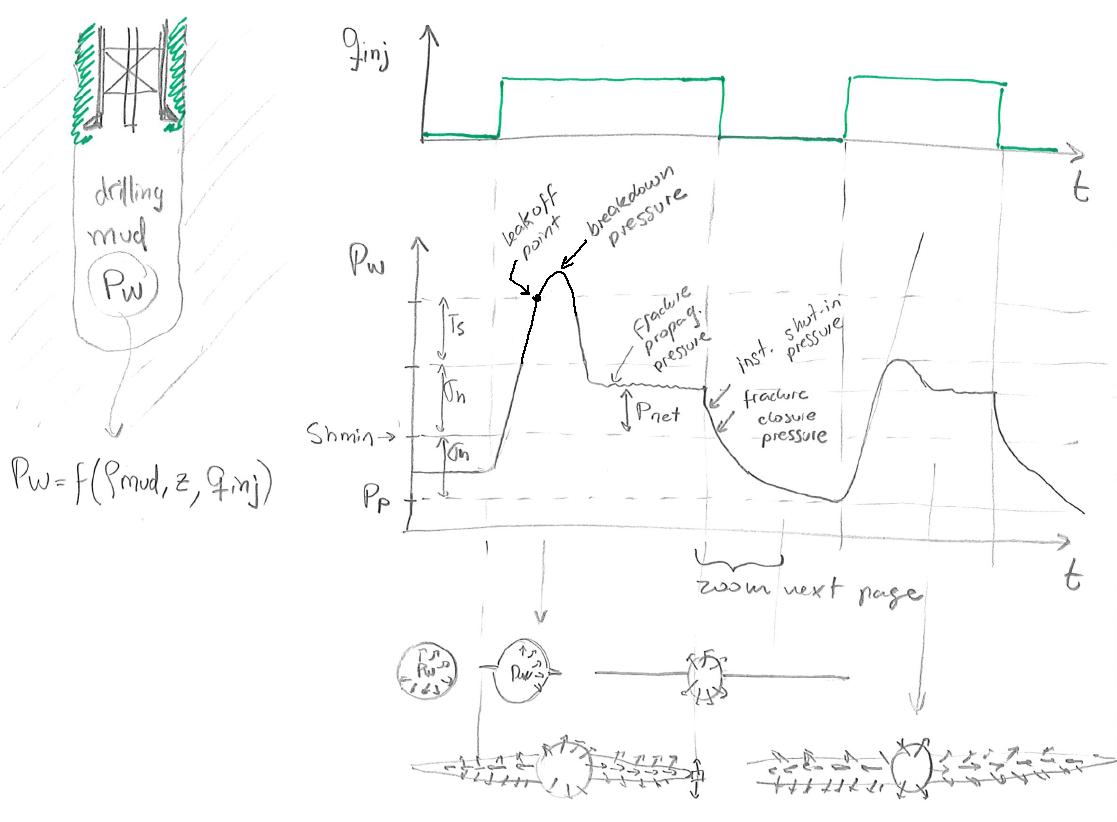 qinj
t
drilling
mud
Pw
Pw = f(ρmud, z, qinj)
Pw
leakoff
point
breakdown
pressure
Ts
σh
Shmin →
σh
Pp
fracture
propag.
pressure
Pnet
inst. shut-in
pressure
fracture
closure
pressure
t
zoom next page
Pw
Pw